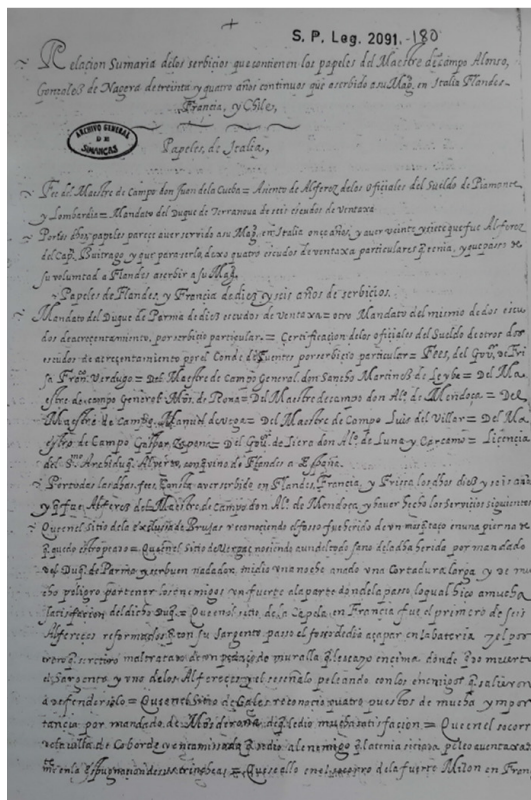 S. P. Leg. 2091.-180
Relacion Sumaria delos serbicios que contienen los papeles del Maestre de campo Alonso,
Gonzales de Nagera de treinta y quatro años continuos que a serbido a su Mag. en Italia Flandes-
Francia, y Chile,
ARCHIVO GENERAL
DE
SIMANCAS
Papeles, de Italia,
Fee del Maestre de Campo don Juan dela Cueba = Asiento de Alferez delos oficiales del Sueldo de Piamonte
y Lombardia = Mandato del Duque de Terranoua de seis escudos de ventaxa
Por los dhos papeles pareçe auer serrido a su Mag. en Italia onçe años, y auer veinte y siete que fue Alferez
del Cap. Buitrago y que para serlo, dexo quatro escudos de ventaxa particulares q tenia, y que paso de
su voluntad a Flandes a serbir a su Mag.
Papeles de Flandes, y Francia de diez y seis años de serbicios.
Mandato del Duque de Parma de diez escudos de ventaxa = otro Mandato del mismo de dos escu
dos de acresentamiento, por serbicio particular. = Certificacion delos oficiales del Sueldo de otros dos
escudos de acresentamiento por el Conde de Fuentes por serbicio particular = Fees, del Gou. de Fri
sa Fran. Verdugo = Del Maestre de Campo General don Sancho Martinez de Leyba = Del Ma
estre de campo General Mos. de Rona = Del Maestre de campo don Al. de Mendoça = Del
Maestre de Campo, Manuel de Vega = Del Maestre de Campo Luis del Villar = Del Ma
estro de Campo Gaspar Zapena = Del Gou. de Liero don Al. de Luna y Carcamo = Licencia
del Archiduq. Alberto, con q vino de Flandes a España.
Por todas las dhas fees consta auer serbido en Flandes, Francia, y Frisa los dhos diez y seis años
y q fue Alferez del Maestre de Campo don Al. de Mendoca, y hauer hecho los servicios siguientes
Que en el Sitio dela exclusa de Brujas reconociendo el foso fue herido de vn mosqtaço en vna pierna de
q quedo estropeado = Que en el Sitio de Vergas no siendo aun del todo sano dela dha herida por mandado
del Duq. de Parma y ser buen nadador midio vna noche a nado vna Cortadura larga y de mu
cho peligro por tener los enemigos vn fuerte ala parte donde la paso lo qual hiço a mucha
satisfacion del dicho Duq. = Que en el sitio de la Capela en Francia fue el primero de seis
Alfereçes reformados q con su Sargento paso el foso de dia a çapar en la bateria y el por
trero q se retiro maltratado de vn pedaço de muralla q le cayo encima donde q do muerto
el Sargento y vno delos Alfereçes y el señalo peleando con los enemigos q salieron
a defenderselo = Que en el Sitio de Cales reconocio quatro puestos de mucha ynpor
tancia por mandado de Mos de rona diq le dio mucha satisfacion = Que en el socorr
o dela villa de
mi en la espugnacion de sus trincheas = Que se allo en el socorro de la fuerte Milon en Fran